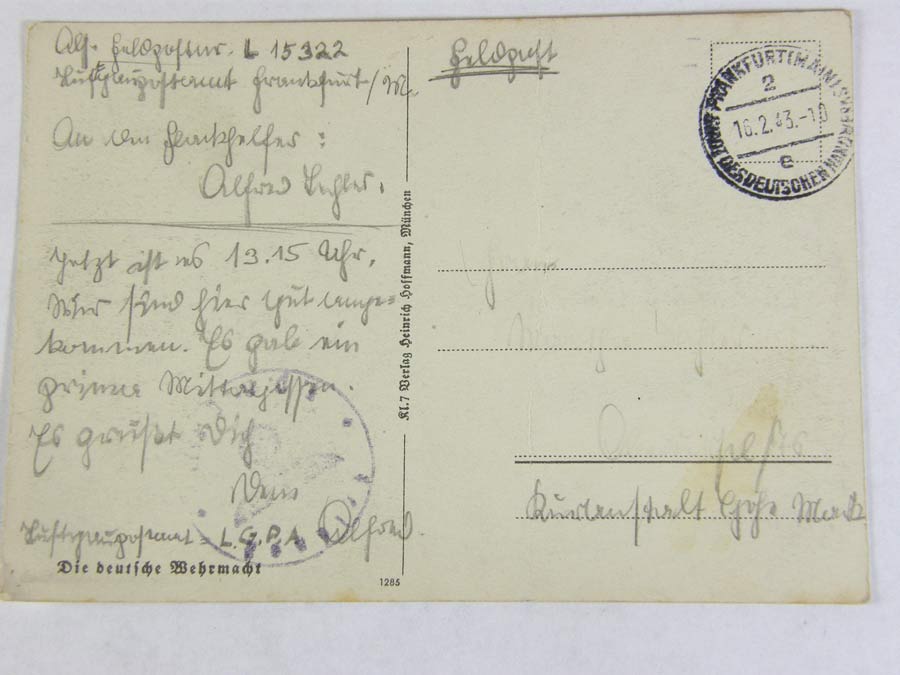 Abs. Feldpostnr. L 15322
Luftgaupostamt Frankfurt/M.
An den Flackhelfer:
Alfred
Jetzt ist es 13.15 Uhr.
Wir sind hier gut ange=
kommen. Es gab ein
prima Mittagessen.
Es grüßt Dich
Dein
Alfred.
Luftgaupostamt - L.G.P.A.
Die deutsche Wehrmacht
1285
Kl.7 Verlag Heinrich Hoffmann, München
Feldpost
FRANKFURT (MAIN) 1
2
16.2.43.-10
e
STADT DES DEUTSCHEN HANDWERKS
Kuranstalt Hohe Mark